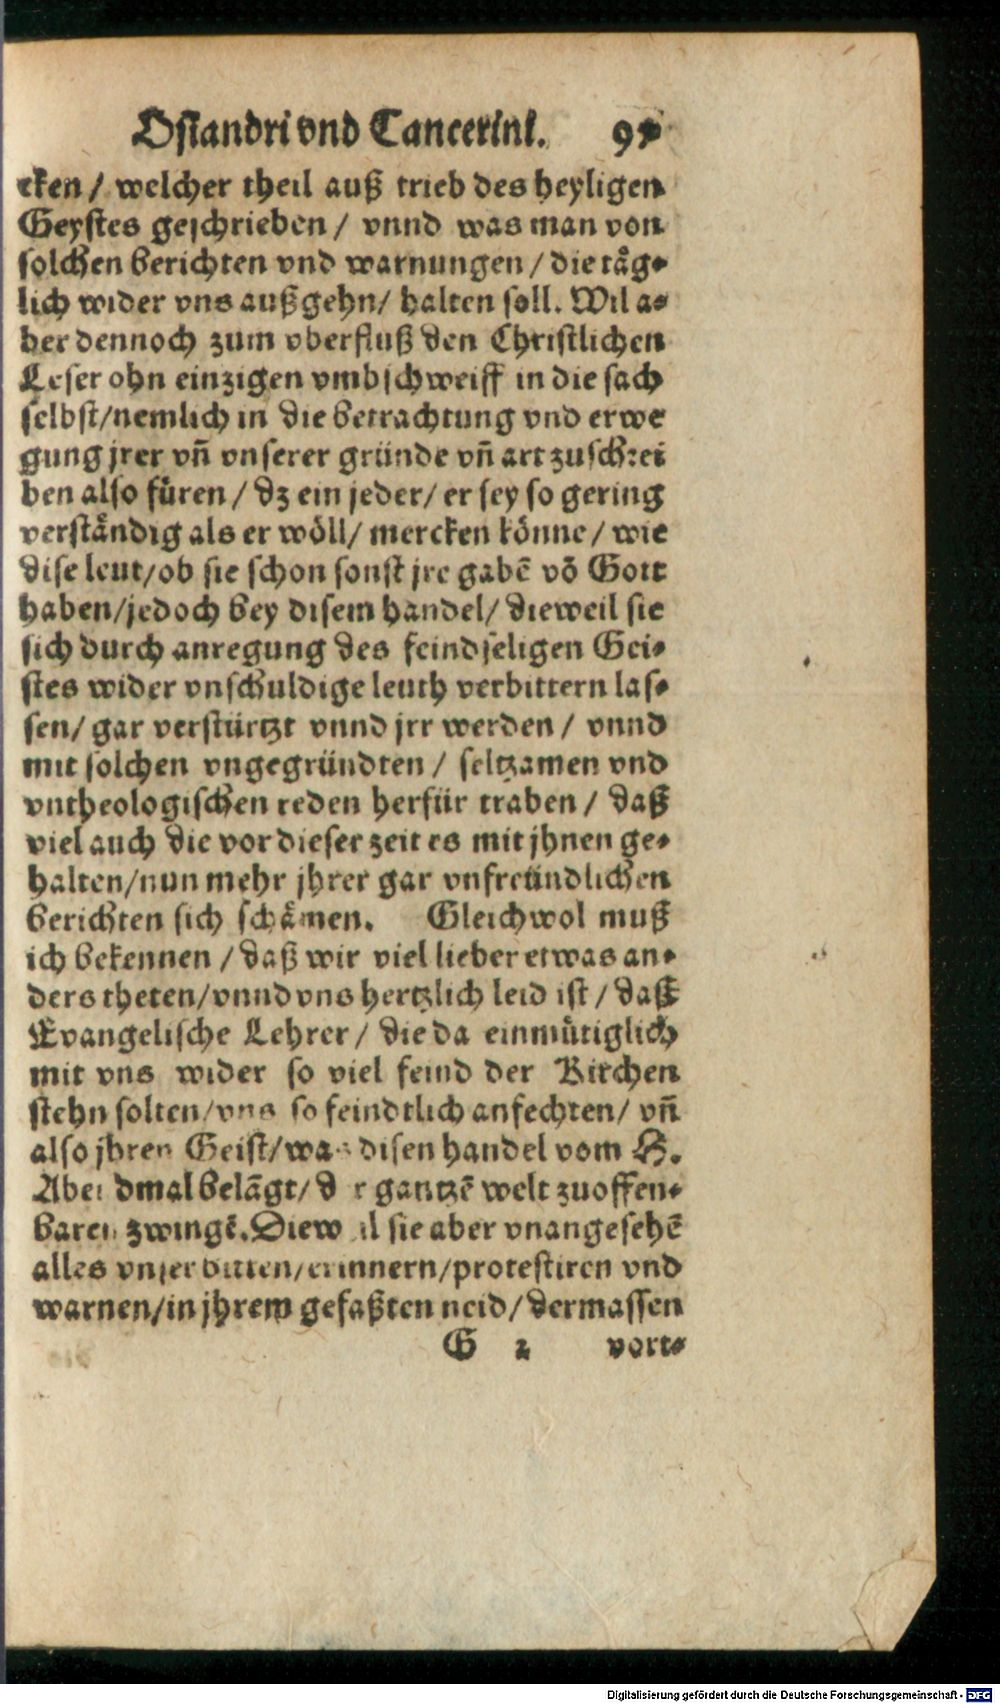 Osiandri vnd Tancerini. 97
cken / welcher theil auß trieb des heyligen
Geystes geschrieben / vnnd was man von
solchen berichten vnd warnungen / die täg-
lich wider vns außgehn / halten soll. Wil a-
ber dennoch zum vberfluß den Christlichen
Leser ohn einzigen vmbschweiff in die sach
selbst / nemlich in die betrachtung vnd erwe
gung jrer vñ vnserer gründe vñ art zuschrei
ben also füren / dz ein jeder / er sey so gering
verständig als er wöll / mercken könne / wie
dise leut / ob sie schon sonst jre gabē vō Gott
haben / jedoch bey disem handel / dieweil sie
sich durch anregung des feindseligen Gei-
stes wider vnschuldige leuth verbittern las-
sen / gar verstürtzt vnnd jrr werden / vnnd
mit solchen vngegründten / seltzamen vnd
vntheologischen reden herfür traben / daß
viel auch die vor dieser zeit es mit jhnen ge-
halten / nun mehr jhrer gar vnfreündlichen
berichten sich schämen. Gleichwol muß
ich bekennen / daß wir viel lieber etwas an-
ders theten / vnnd vns hertzlich leid ist / daß
Evangelische Lehrer / die da einmütiglich
mit vns wider so viel feind der Kirchen
stehn solten / vns so feindtlich anfechten / vñ
also jhren Geist / was disen handel vom H.
Abendmal belāgt / der gantzē welt zuoffen-
baren zwingē. Dieweil sie aber vnangesehē
alles vnser bitten / erinnern / protestiren vnd
warnen / in jhrem gefaßten neid / dermassen
G 2 vort-
Digitalisierung gefördert durch die Deutsche Forschungsgemeinschaft - DFG